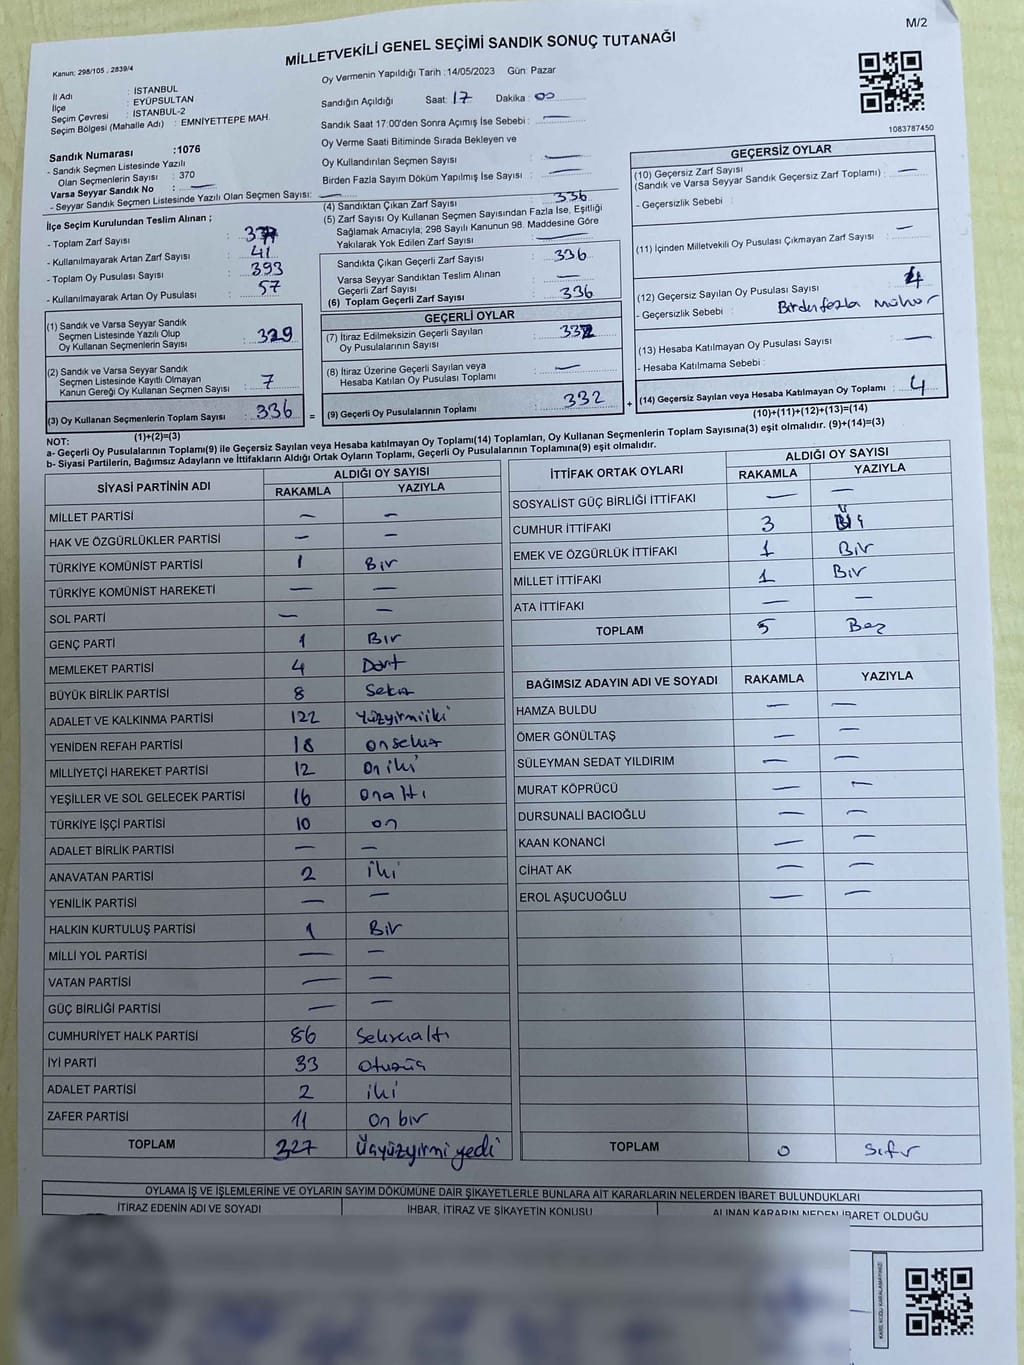 M/2
MİLLETVEKİLİ GENEL SEÇİMİ SANDIK SONUÇ TUTANAĞI
Kanun; 298/105 , 2839/4
Oy Vermenin Yapıldığı Tarih :14/05/2023 Gün: Pazar
İl Adı : İSTANBUL
İlçe : EYÜPSULTAN
Seçim Çevresi : İSTANBUL-2
Seçim Bölgesi (Mahalle Adı) : EMNİYETTEPE MAH.
Sandık Numarası :1076
- Sandık Seçmen Listesinde Yazılı
Olan Seçmenlerin Sayısı : 370
Varsa Seyyar Sandık No : —
- Seyyar Sandık Seçmen Listesinde Yazılı Olan Seçmen Sayısı:
Sandığın Açıldığı Saat: 17 Dakika : 00
Sandık Saat 17:00'den Sonra Açımış İse Sebebi : —
Oy Verme Saati Bitiminde Sırada Bekleyen ve
Oy Kullandırılan Seçmen Sayısı —
Birden Fazla Sayım Döküm Yapılmış İse Sayısı : —
1083787450
İlçe Seçim Kurulundan Teslim Alınan ;
- Toplam Zarf Sayısı :
- Kullanılmayarak Artan Zarf Sayısı : 41
- Toplam Oy Pusulası Sayısı : 393
- Kullanılmayarak Artan Oy Pusulası : 57
(1) Sandık ve Varsa Seyyar Sandık
Seçmen Listesinde Yazılı Olup
Oy Kullanan Seçmenlerin Sayısı : 329
(2) Sandık ve Varsa Seyyar Sandık
Seçmen Listesinde Kayıtlı Olmayan
Kanun Gereği Oy Kullanan Seçmen Sayısı : 7
(3) Oy Kullanan Seçmenlerin Toplam Sayısı : 336 =
(1)+(2)=(3)
(4) Sandıktan Çıkan Zarf Sayısı : 336
(5) Zarf Sayısı Oy Kullanan Seçmen Sayısından Fazla İse, Eşitliği
Sağlamak Amacıyla; 298 Sayılı Kanunun 98. Maddesine Göre
Yakılarak Yok Edilen Zarf Sayısı : —
Sandıkta Çıkan Geçerli Zarf Sayısı : 336
Varsa Seyyar Sandıktan Teslim Alınan
Geçerli Zarf Sayısı : —
(6) Toplam Geçerli Zarf Sayısı : 336
GEÇERLİ OYLAR
(7) İtiraz Edilmeksizin Geçerli Sayılan
Oy Pusulalarının Sayısı : 332
(8) İtiraz Üzerine Geçerli Sayılan veya
Hesaba Katılan Oy Pusulası Toplamı : —
(9) Geçerli Oy Pusulalarının Toplamı : 332 +
GEÇERSİZ OYLAR
(10) Geçersiz Zarf Sayısı
(Sandık ve Varsa Seyyar Sandık Geçersiz Zarf Toplamı) : —
- Geçersizlik Sebebi :
(11) İçinden Milletvekili Oy Pusulası Çıkmayan Zarf Sayısı : —
(12) Geçersiz Sayılan Oy Pusulası Sayısı : 4
- Geçersizlik Sebebi : Birden fazla mühür
(13) Hesaba Katılmayan Oy Pusulası Sayısı : —
- Hesaba Katılmama Sebebi :
(14) Geçersiz Sayılan veya Hesaba Katılmayan Oy Toplamı : 4
(10)+(11)+(12)+(13)=(14)
NOT:
a- Geçerli Oy Pusulalarının Toplamı(9) ile Geçersiz Sayılan veya Hesaba katılmayan Oy Toplamı(14) Toplamları, Oy Kullanan Seçmenlerin Toplam Sayısına(3) eşit olmalıdır. (9)+(14)=(3)
b- Siyasi Partilerin, Bağımsız Adayların ve İttifakların Aldığı Ortak Oyların Toplamı, Geçerli Oy Pusulalarının Toplamına(9) eşit olmalıdır.
SİYASİ PARTİNİN ADI ALDIĞI OY SAYISI
RAKAMLA YAZIYLA
MİLLET PARTİSİ — —
HAK VE ÖZGÜRLÜKLER PARTİSİ — —
TÜRKİYE KOMÜNİST PARTİSİ 1 Bir
TÜRKİYE KOMÜNİST HAREKETİ — —
SOL PARTİ — —
GENÇ PARTİ 1 Bir
MEMLEKET PARTİSİ 4 Dört
BÜYÜK BİRLİK PARTİSİ 8 Sekiz
ADALET VE KALKINMA PARTİSİ 122 Yüzyirmiiki
YENİDEN REFAH PARTİSİ 18 onsekiz
MİLLİYETÇİ HAREKET PARTİSİ 12 on iki
YEŞİLLER VE SOL GELECEK PARTİSİ 16 onaltı
TÜRKİYE İŞÇİ PARTİSİ 10 on
ADALET BİRLİK PARTİSİ — —
ANAVATAN PARTİSİ 2 iki
YENİLİK PARTİSİ — —
HALKIN KURTULUŞ PARTİSİ 1 Bir
MİLLİ YOL PARTİSİ — —
VATAN PARTİSİ — —
GÜÇ BİRLİĞİ PARTİSİ — —
CUMHURİYET HALK PARTİSİ 86 Seksenaltı
İYİ PARTİ 33 otuzüç
ADALET PARTİSİ 2 iki
ZAFER PARTİSİ 11 on bir
TOPLAM 327 Üçyüzyirmi yedi
İTTİFAK ORTAK OYLARI ALDIĞI OY SAYISI
RAKAMLA YAZIYLA
SOSYALİST GÜÇ BİRLİĞİ İTTİFAKI — —
CUMHUR İTTİFAKI 3 Üç
EMEK VE ÖZGÜRLÜK İTTİFAKI 1 Bir
MİLLET İTTİFAKI 1 Bir
ATA İTTİFAKI — —
TOPLAM 5 Beş
BAĞIMSIZ ADAYIN ADI VE SOYADI RAKAMLA YAZIYLA
HAMZA BULDU — —
ÖMER GÖNÜLTAŞ — —
SÜLEYMAN SEDAT YILDIRIM — —
MURAT KÖPRÜCÜ — —
DURSUNALİ BACIOĞLU — —
KAAN KONANCİ — —
CİHAT AK — —
EROL AŞUCUOĞLU — —
TOPLAM 0 Sıfır
OYLAMA İŞ VE İŞLEMLERİNE VE OYLARIN SAYIM DÖKÜMÜNE DAİR ŞİKAYETLERLE BUNLARA AİT KARARLARIN NELERDEN İBARET BULUNDUKLARI
İTİRAZ EDENİN ADI VE SOYADI İHBAR, İTİRAZ VE ŞİKAYETİN KONUSU ALINAN KARARIN NEDEN İBARET OLDUĞU
KARE KODU KARALAMAYINIZ!